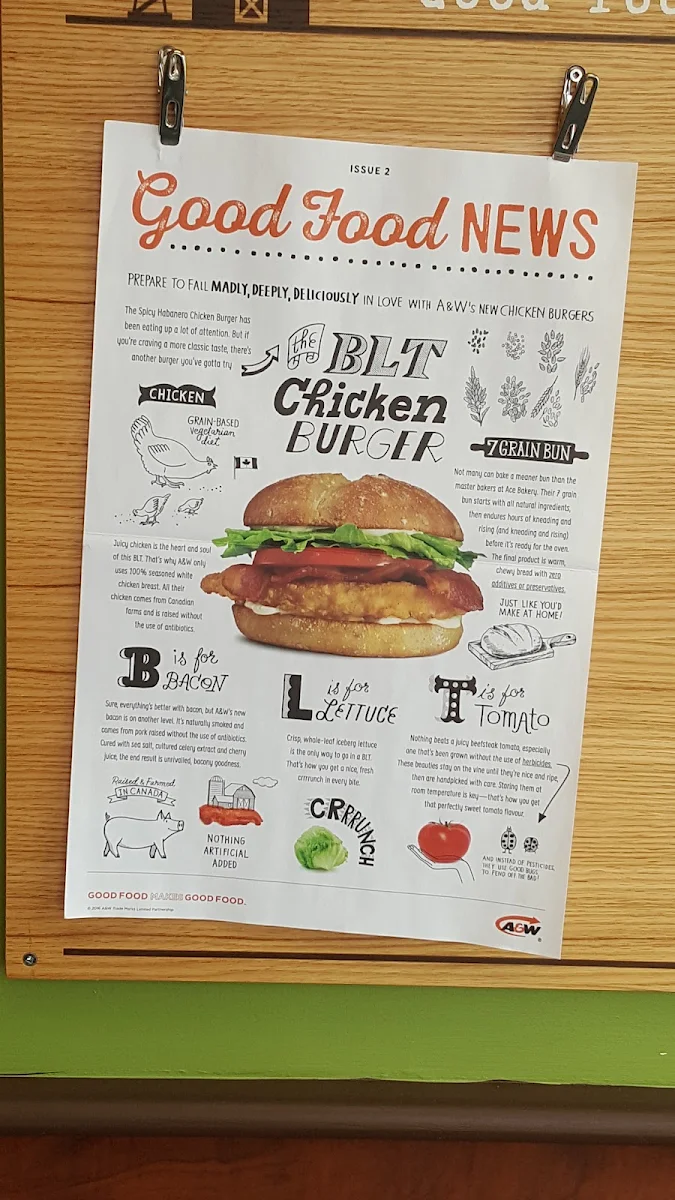 ISSUE 2
Good Food NEWS
PREPARE TO FALL MADLY, DEEPLY, DELICIOUSLY IN LOVE WITH A&W's NEW CHICKEN BURGERS
The Spicy Habanero Chicken Burger has
been eating up a lot of attention. But if
you're craving a more classic taste, there's
another burger you've gotta try
the BLT
Chicken
BURGER
CHICKEN
GRAIN-BASED
vegetarian
diet
Juicy chicken is the heart and soul
of this BLT. That's why A&W only
uses 100% seasoned white
chicken breast. All their
chicken comes from Canadian
farms and is raised without
the use of antibiotics.
7 GRAIN BUN
Not many can bake a meaner bun than the
master bakers at Ace Bakery. Their 7 grain
bun starts with all natural ingredients,
then endures hours of kneading and
rising (and kneading and rising)
before it's ready for the oven.
The final product is warm,
chewy bread with zero
additives or preservatives.
JUST LIKE YOU'D
MAKE AT HOME!
B is for
BACON
Sure, everything's better with bacon, but A&W's new
bacon is on another level. It's naturally smoked and
comes from pork raised without the use of antibiotics.
Cured with sea salt, cultured celery extract and cherry
juice, the end result is unrivalled, bacony goodness.
Raised & Farmed
IN CANADA
NOTHING
ARTIFICIAL
ADDED
L is for
LETTUCE
Crisp, whole-leaf iceberg lettuce
is the only way to go in a BLT.
That's how you get a nice, fresh
crrrrunch in every bite.
CRRRUNCH
T is for
TOMATO
Nothing beats a juicy beefsteak tomato, especially
one that's been grown without the use of herbicides.
These beauties stay on the vine until they're nice and ripe,
then are handpicked with care. Storing them at
room temperature is key—that's how you get
that perfectly sweet tomato flavour.
AND INSTEAD OF PESTICIDES,
THEY USE GOOD BUGS
TO FEND OFF THE BAD!
GOOD FOOD MAKES GOOD FOOD.
A&W